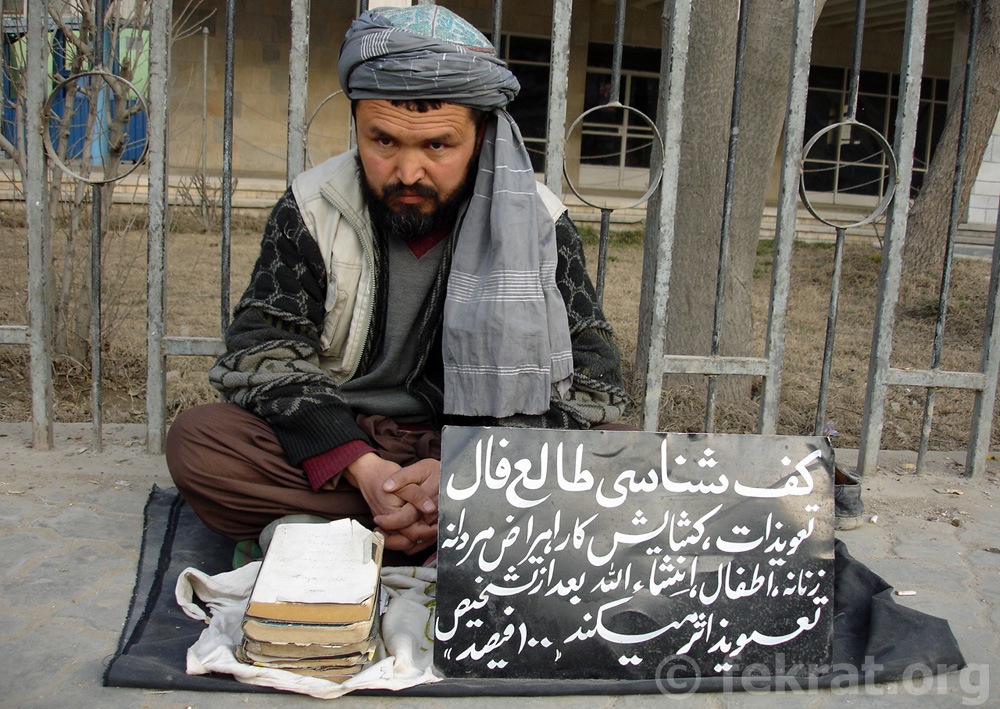 کف شناسی طالع فال
تعویذات، کشایش کار، امراض مردانه
زنانه، اطفال، انشاء الله بعد از تشخیص
تعویذ اثر میکند "۱۰۰ فیصد"
© Tekrat.org